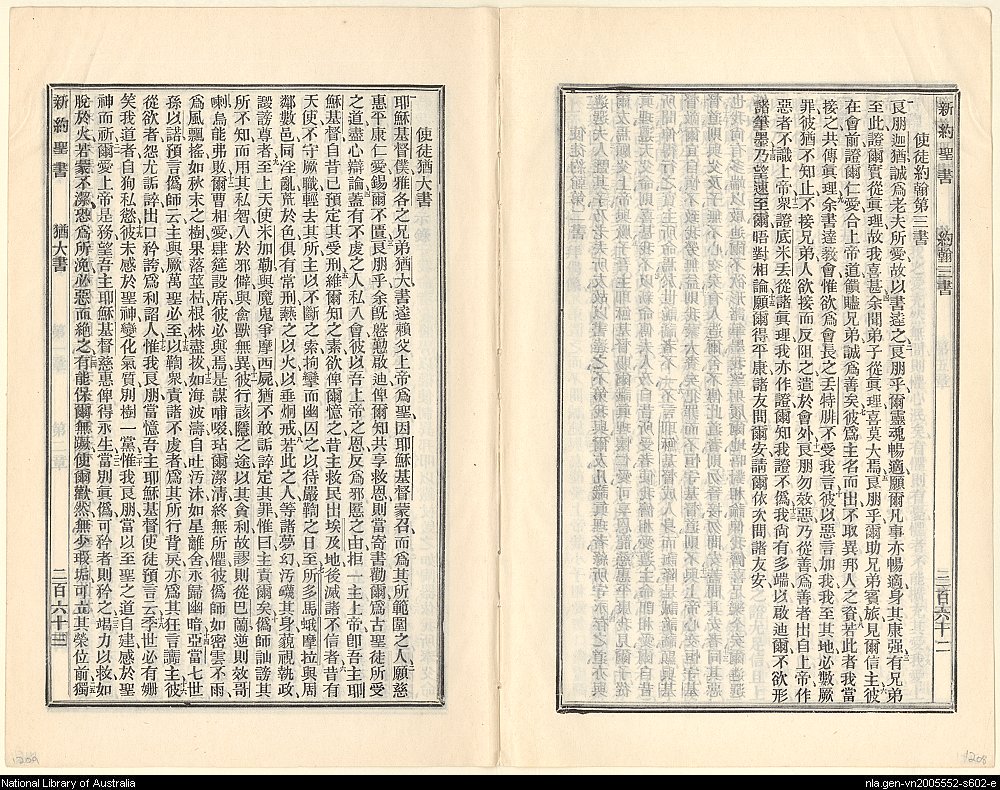 新約聖書 約翰三書 二百六十二
使徒約翰第三書
良朋迦猶誠爲老夫所愛故以書達之良朋乎爾靈魂暢適願爾凡事亦暢適身其康强有兄弟
至此證爾實從眞理故我喜甚余聞弟子從眞理喜莫大焉良朋乎爾助兄弟賓旅見爾信主彼
在會前證爾仁愛合上帝道饋贐兄弟誠爲善矣彼爲主名而出不取異邦人之資若此者我當
接之共傳眞理余書達敎會惟欲爲會長之丢特腓不受我言彼以惡言加我我至其地必數厥
罪彼猶不知止不接兄弟人欲接而反阻之遣於會外良朋勿效惡乃從善爲善者出自上帝作
惡者不識上帝衆證底米丢從諸眞理我亦作證爾知我證不僞我尙有多端以啟迪爾不欲形
諸筆墨乃望速至爾晤對相論願爾得平康諸友問爾安請爾依次問諸友安
新約聖書 猶大書 二百六十三
使徒猶大書
耶穌基督僕雅各之兄弟猶大書達賴父上帝爲聖因耶穌基督蒙召而爲其所範圍之人願慈
惠平康仁愛錫爾不匱良朋乎余旣慇懃啟迪俾爾知共享救恩則當寄書勸爾爲古聖徒所受
之道盡心辯論蓋有不虔之人私入會彼以吾上帝之恩反爲邪慝之由拒一主上帝卽吾主耶
穌基督自昔已預定其受刑維爾知之素欲俾爾憶之昔主救民出埃及地後滅諸不信者昔有
天使不守厥職輕去其所主以不斷之索拘攣而幽囚之以待嚴鞫之日至所多馬蛾摩拉與周
鄰數邑同淫亂荒於色俱有常刑爇之以火以垂炯戒若此之人等諸夢幻汚衊其身藐視執政
謗訕尊者至上天使米加勒與魔鬼爭摩西屍猶不敢詬誶定其罪惟曰主責爾矣僞師訕謗其
所不知而用其私智入於邪僻與禽獸無異彼行該隱之途以其貪利故謬則從巴蘭逆則效哥
喇烏能弗敗爾曹相愛肆筵設席彼必與焉是謀哺啜玷爾潔淸終無所懼彼僞師如密雲不雨
爲風飄搖如秋末之樹果落莖枯根株盡拔如海波濤自吐汚沫如星離舍永歸幽暗亞當七世
孫以諾預言僞師云主與厥萬聖必至以鞫衆責諸不虔者爲其所行背戾亦爲其狂言讟主彼
從欲者怨尤詬誶出口矜誇爲利諂人惟我良朋當憶吾主耶穌基督使徒預言云季世必有姍
笑我道者自狥私慾彼未感於聖神變化氣質別樹一黨惟我良朋當以至聖之道自建感於聖
神而祈爾愛上帝是務望吾主耶穌基督慈惠俾得永生當別眞僞可矜者則矜之竭力以救如
脫於火若蒙不潔恐爲所浼必惡而絕之有能保爾無蹶使爾歡然無少瑕垢可立其榮位前獨
1209
1208
National Library of Australia
nla.gen-vn2005552-s602-e